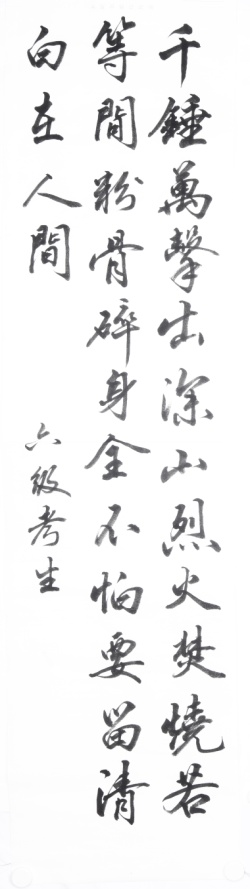 千錘萬擊出深山烈火焚燒若
等閒粉骨碎身全不怕要留清
白在人間
六級考生